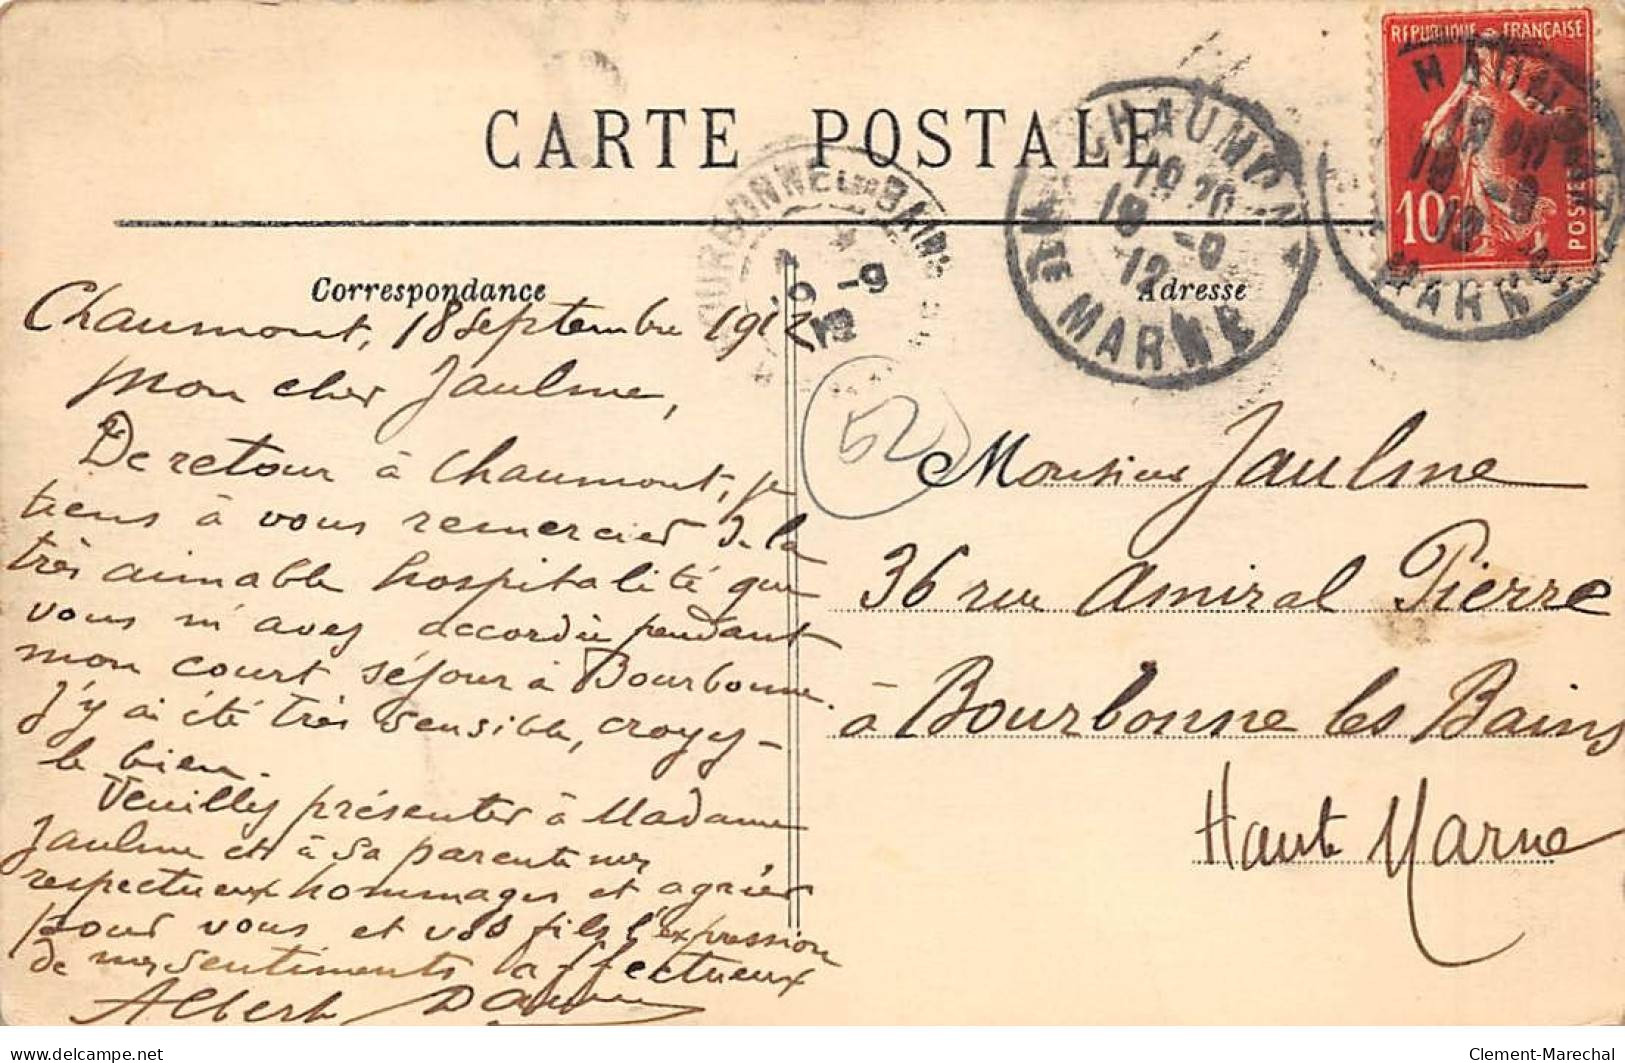 CARTE POSTALE
Correspondance
Adresse
REPUBLIQUE FRANÇAISE
10
POSTES
CHAUMONT
18 20
18 -9
12
HTE MARNE
BOURBONNE LES BAINS
-9
12
52
Chaumont, 18 septembre 1912
Mon cher Jaulme,
De retour à Chaumont, je
tiens à vous remercier de la
très aimable hospitalité que
vous m'avez accordée pendant
mon court séjour à Bourbonne.
J'y ai été très sensible, croyez-
le bien.
Veuillez présenter à Madame
Jaulme et à sa parente mes
respectueux hommages et agréer
pour vous et vos fils l'expression
de mes sentiments affectueux
Albert
Monsieur Jaulme
36 rue Amiral Pierre
à Bourbonne les Bains
Haute Marne
delcampe.net
Clement-Marechal